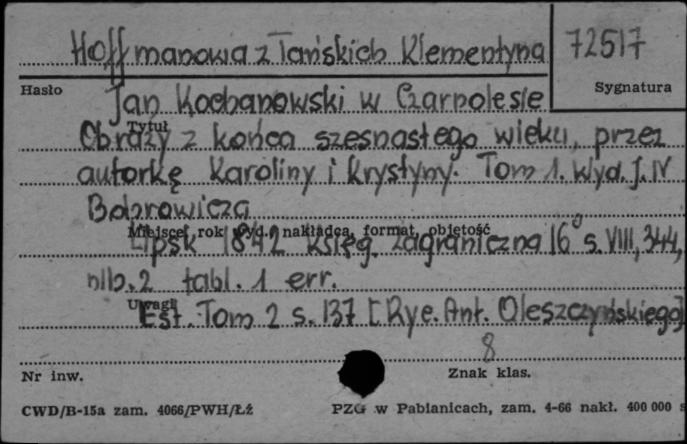 Hoffmanowa z Tańskich Klementyna
72517
Hasło
Sygnatura
Jan Kochanowski w Czarnolesie
Tytuł
Obrazy z końca szesnastego wieku, przez
autorkę Karoliny i Krystyny. Tom 1. Wyd. J. N
Bobrowicza
Miejsce, rok wyd., nakładca, format, objętość
Lipsk 1842 Księg. Zagraniczna 16° s. VIII, 344,
nlb. 2 tabl. 1 err.
Uwagi
Est. Tom 2 s. 137 [Ryc. Ant. Oleszczyńskiego]
8
Nr inw.
Znak klas.
CWD/B-15a zam. 4066/PWH/Łź
PZG w Pabianicach, zam. 4-66 nakł. 400 000 s